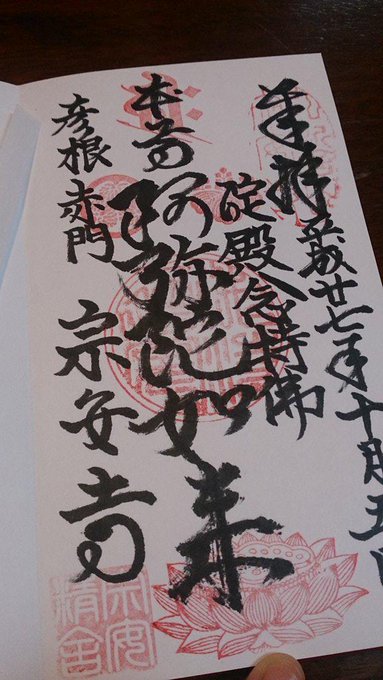 奉拝 平成廿七年十月五日
淀殿念持佛
本尊 阿弥陀如来
彦根 赤門 宗安寺
宗安
精舎